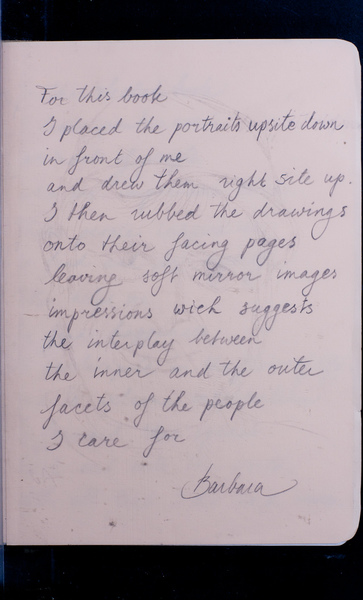 For this book
I placed the portraits upsite down
in front of me
and drew them right site up.
I then rubbed the drawings
onto their facing pages
leaving soft mirror images
impressions wich suggests
the interplay between
the inner and the outer
facets of the people
I care for
Barbara